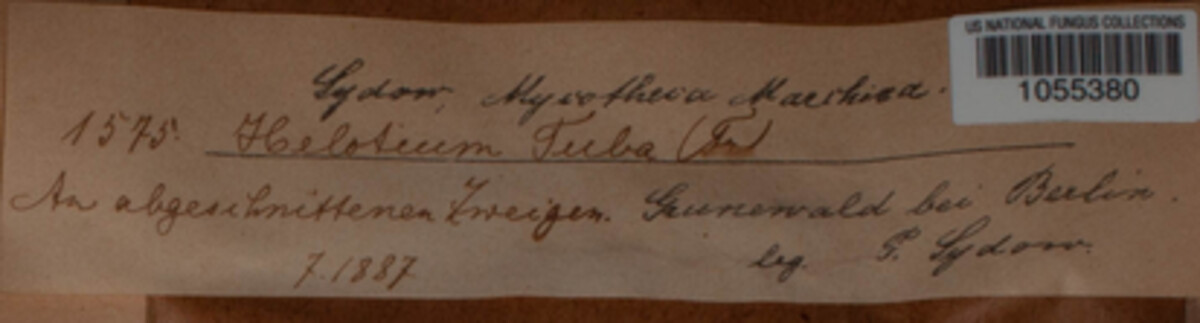 US NATIONAL FUNGUS COLLECTIONS
1055380
Sydow, Mycotheca Marchica.
1575. Helotium Tuba (Fr)
An abgeschnittenen Zweigen. Grunewald bei Berlin.
7.1887 leg. P. Sydow.